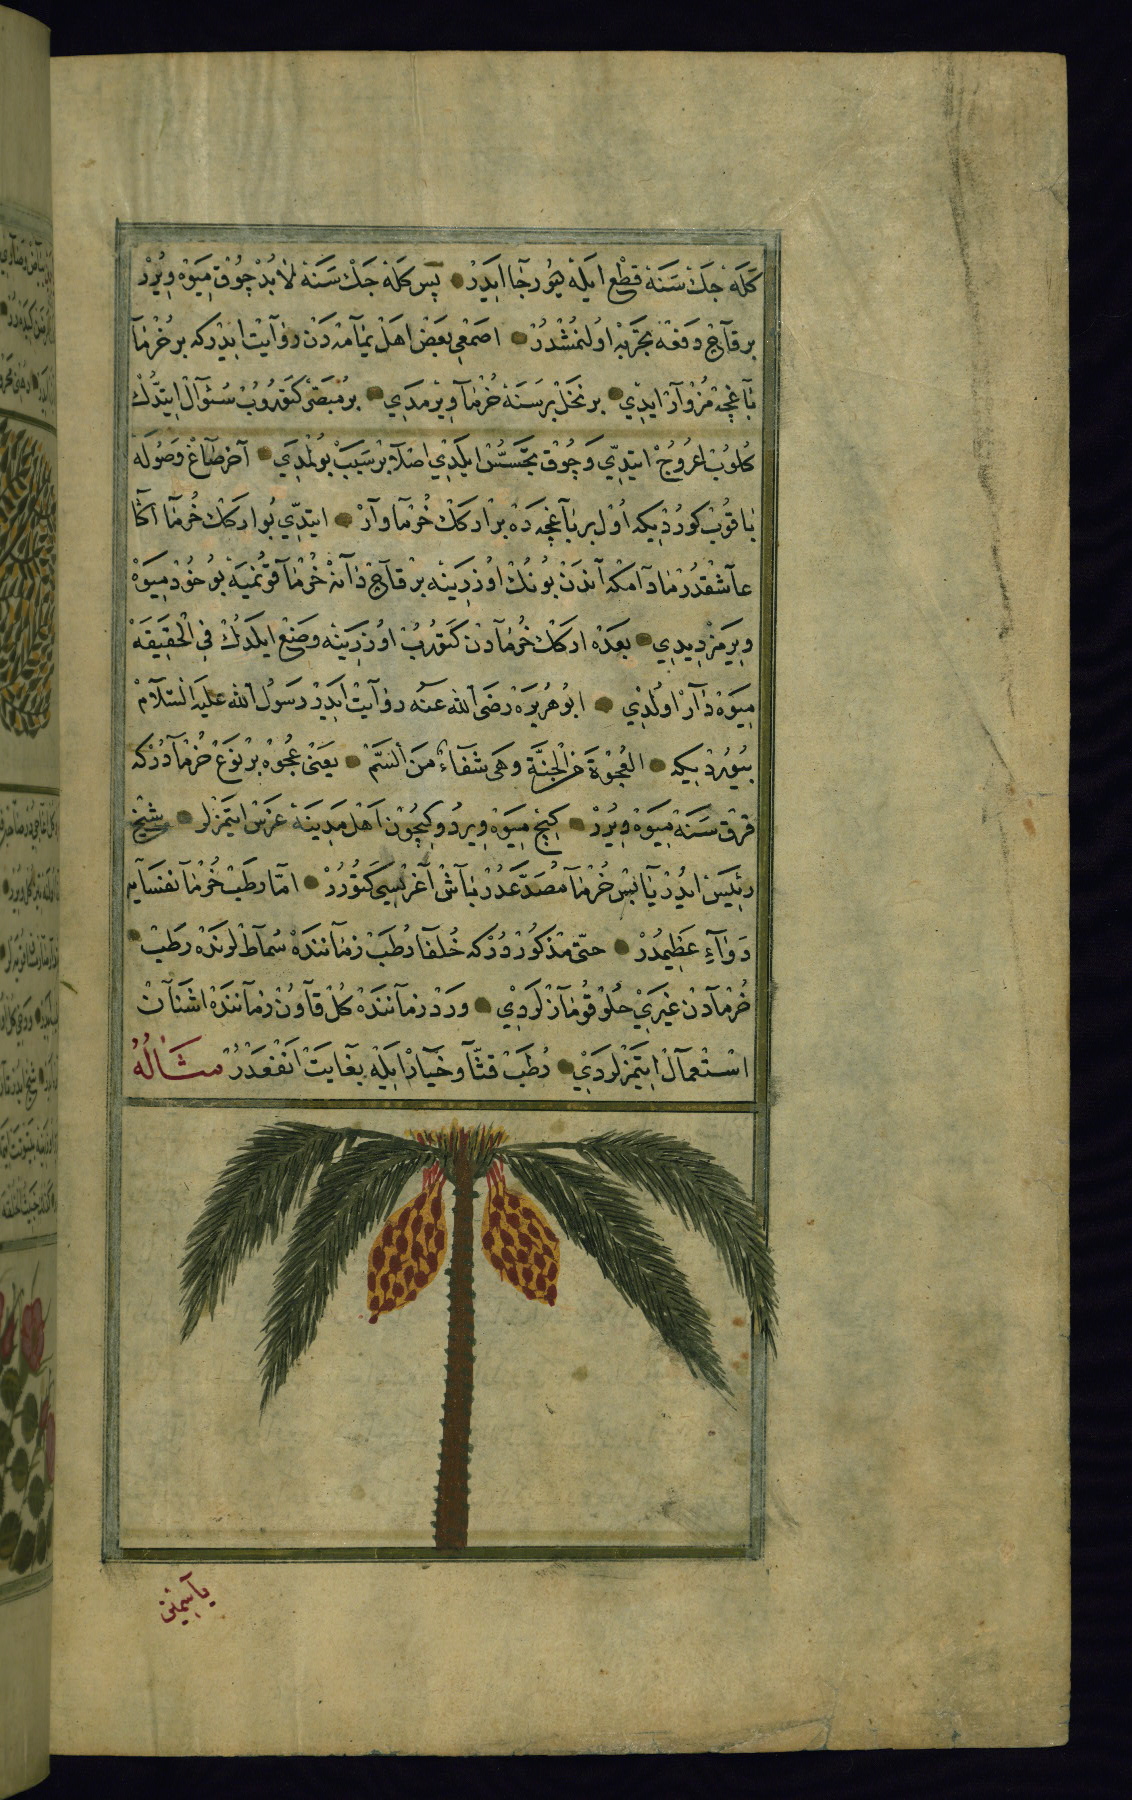 كله جك سنه قطع ايله ديو رجا ايدر پس كله جك سنه لابد چوق ميوه ويرر
برقاچ دفعه تجربه اولنمشدر اصمعي بعض اهل يمامه دن روايت ايدركه بر خرما
باغچه مز وار ايدي بر نخل بر سنه خرما ويرمدي بر مبصر كتوروب سؤال ايتدك
كلوب عروج ايتدي و چوق تجسس ايلدي اصلا بر سبب بولمدي آخر صاغ و صوله
باقوب كوردي كه اول بر باغچه ده بر اركك خرما وار ايتدي بو اركك خرما اكا
عاشقدر مادامكه اندن بونك اوزرينه برقاچ دانه خرما قونميه بو خود ميوه
ويرمز ديدي بعده اركك خرمادن كتوروب اوزرينه وضع ايلدك في الحقيقه
ميوه دار اولدي ابو هريره رضى الله عنه روايت ايدر رسول الله عليه السلام
بيوردي كه العجوة من الجنة وهى شفاء من السم يعنى عجوه بر نوع خرمادركه
قرق سنه ميوه ويرر كيج ميوه ويردوكيچون اهل مدينه غرس ايتمزلر شيخ
رئيس ايدر يابس خرما مصدعدر باش آغريسي كتورر اما رطب خرما نفسايه
دواء عظيمدر حتى مذكوردركه خلفا رطب زماننده سماطلرنده رطب
خرمادن غيري حلو قومازلردي ورد زماننده كل قاون زماننده اشنان
استعمال ايتمزلردي رطب قثا و خيار ايله بغايت انفعدر مثاله
ياسمين